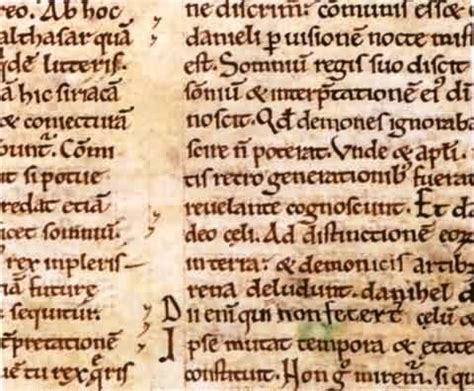 reo. Ab hoc
althasar quā
dē litteris.
a hic siriacā
& coniecturā
bunt. Cōm
t si potue
redat etiā
icet somniū.
rex inpleris
iā future
sequitur.
erpretatione
e tu rex
ne discrim̄: cōmunis esse &
danieli p uisionē nocte mis
est. Somniū regis suo discit
sōniū & interp̄tationē ei' dī
noscit. Qd demones ignoraba
scire n̄ poterat. Vnde & apl̄i
tis retro generationib; fuerat
reuelante cognoscunt. Et da
deo celi. Ad distinctionē eoꝝ
in terra: & demonicis artib
rena deludunt. danihel d
D ii em̄ qui non fecert celū &
I pse mutat tempora & etate
constituit. Hon mirem̄: si